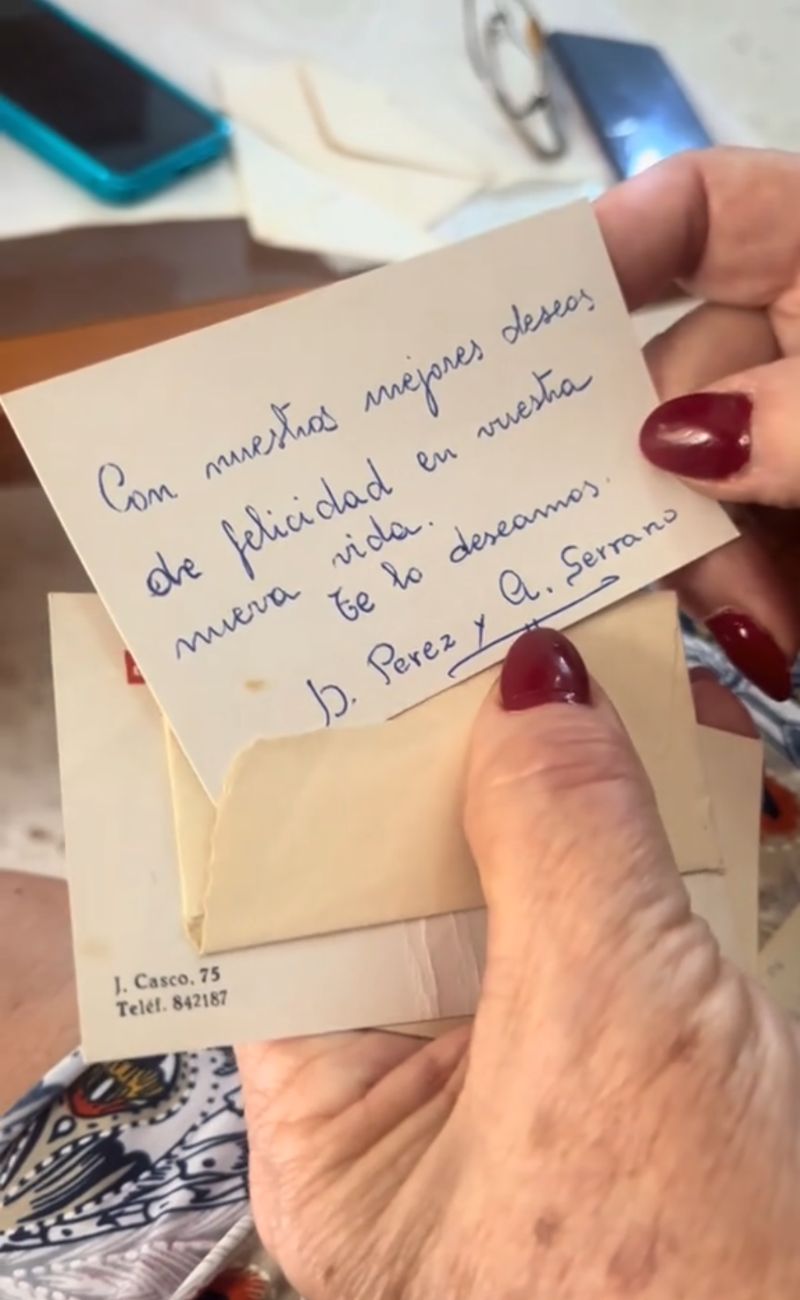 Con nuestros mejores deseos
de felicidad en vuestra
nueva vida.
te lo deseamos.
D. Perez y A. Serrano
J. Casco, 75
Teléf. 842187